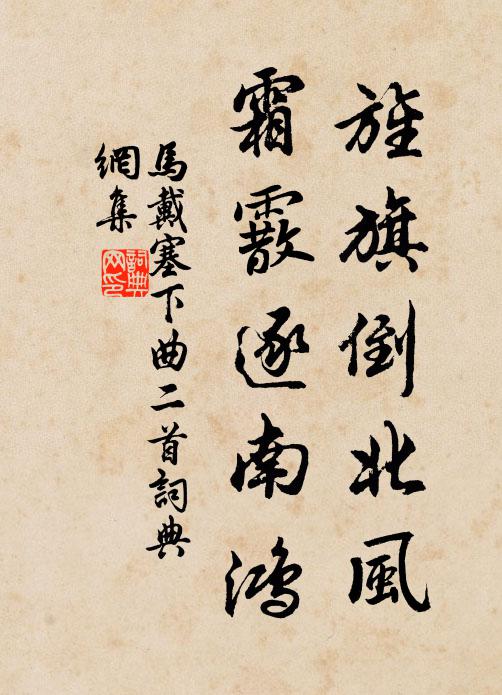 旌旗倒北風
霜霰逐南鴻
馬戴塞下曲二首詞典
網集
詞典网印